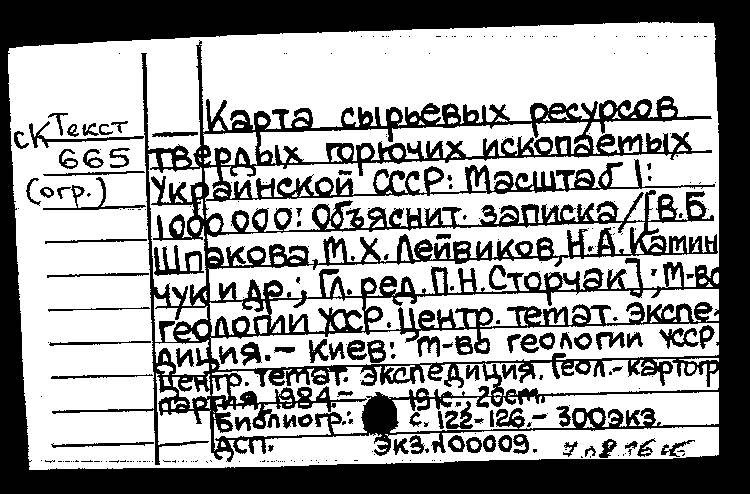 Карта сырьевых ресурсов
ск Текст
665
твердых горючих ископаемых
(огр.)
Украинской ССР: Масштаб 1:
1000 000: Объяснит. записка/[В.Б.
Шпакова, М.Х. Лейвиков, Н.А. Камин
чук и др.; Гл. ред. П.Н. Сторчак]; М-во
геологии УССР. Центр. темат. экспе-
диция. – Киев: М-во геологии УССР.
Центр. темат. экспедиция. Геол.-картогр
партия, 1984. – 191с.; 26см.
Библиогр.: с. 122-126. – 300экз.
ДСП. Экз.N00009.